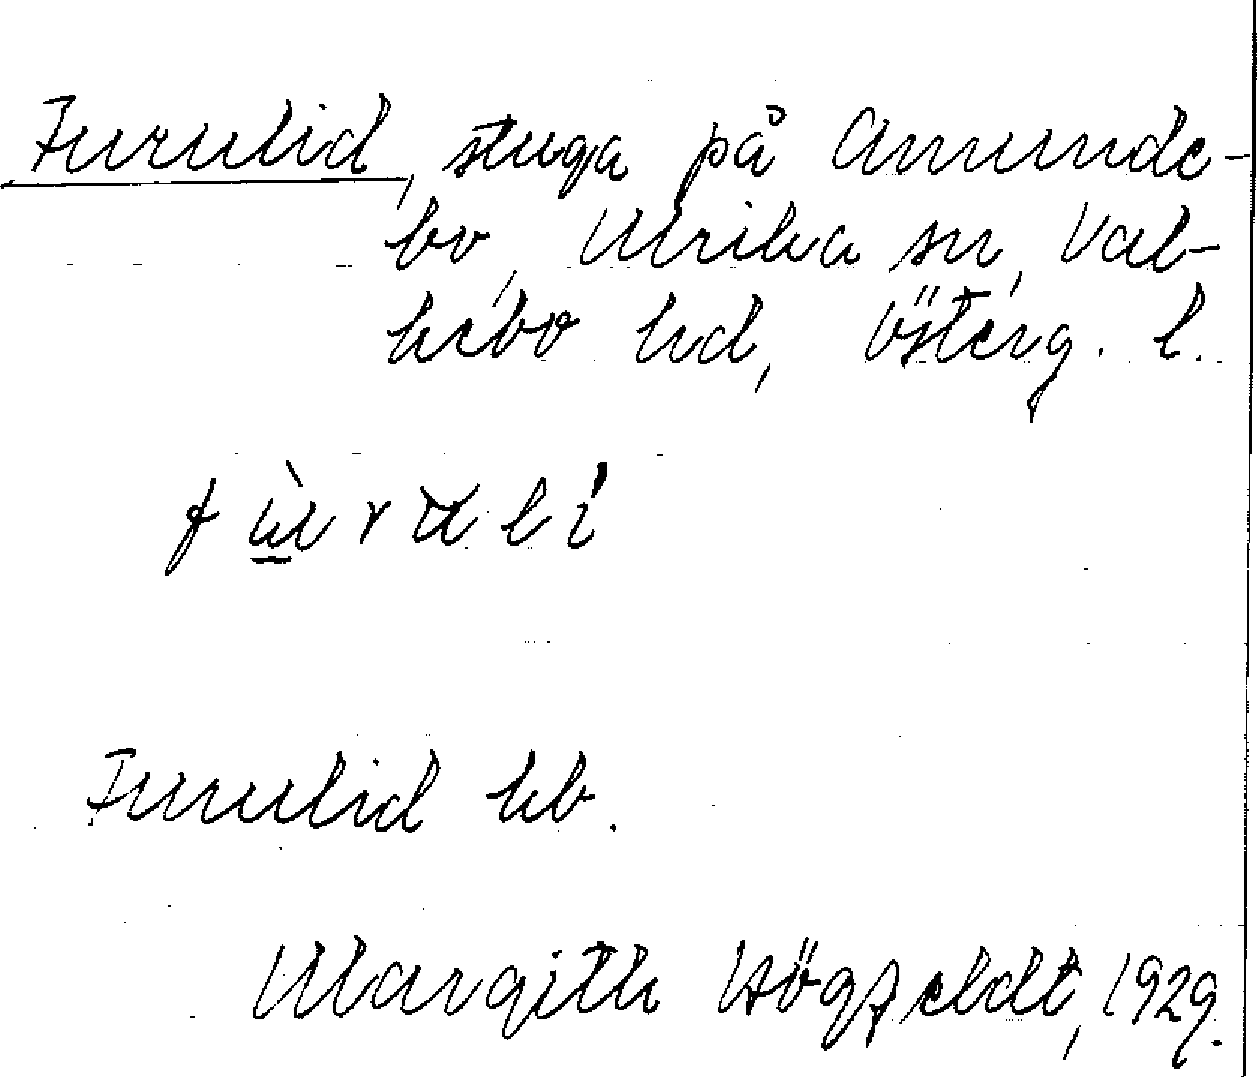 Furulid, stuga på Amunde-
bo, Ulrika sn, Val-
kebo hd, Österg. l.
fùrulí
Furulid kb.
Margith Högfeldt, 1929.